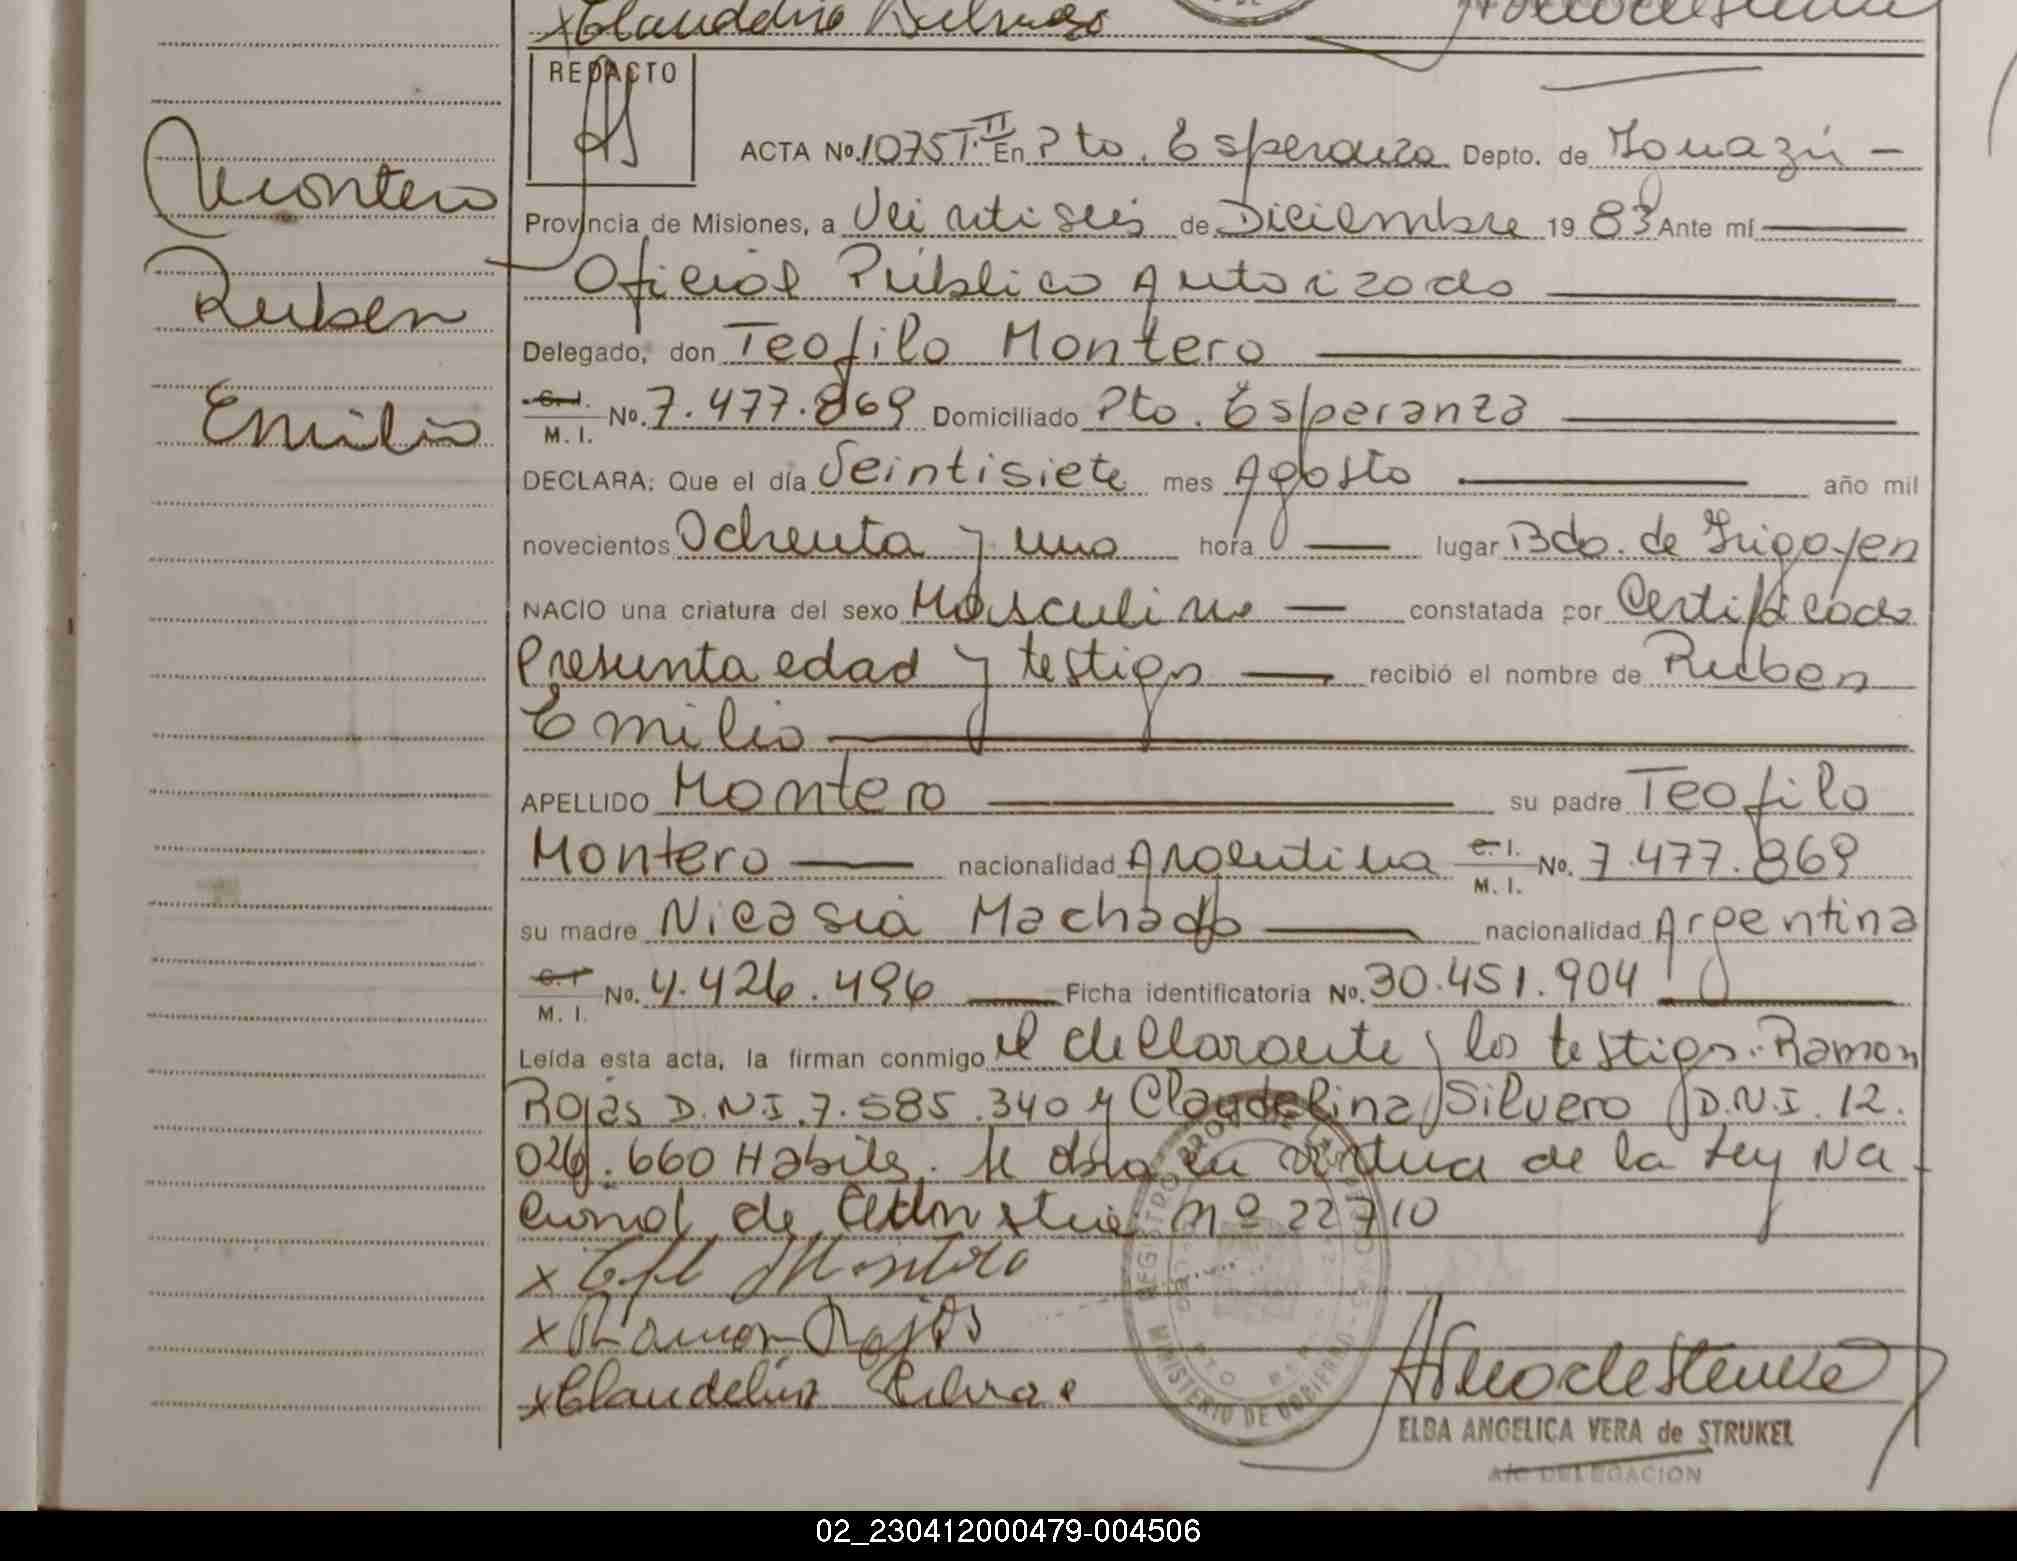 xClaudelina Silvero
REDACTO
ACTA No. 1075 T. II En Pto. Esperanza Depto. de Iguazú -
Provincia de Misiones, a Veintiseis de Diciembre 1983 Ante mí
Oficial Público Autorizado
Delegado, don Teofilo Montero
C. I. M. I. No. 7.477.869 Domiciliado Pto. Esperanza
DECLARA: Que el día Veintisiete mes Agosto año mil
novecientos Ochenta y uno hora lugar Bdo. de Irigoyen
NACIO una criatura del sexo Masculino constatada por Certificado
Presunta edad y testigos recibió el nombre de Ruben
Emilio
APELLIDO Montero su padre Teofilo
Montero nacionalidad Argentina C. I. M. I. No. 7.477.869
su madre Nicasia Machado nacionalidad Argentina
C. I. M. I. No. 4.426.496 Ficha identificatoria No. 30.451.904
Leída esta acta, la firman conmigo el declarante y los testigos. Ramon
Rojas D.N.I. 7.585.340 y Claudelina Silvero D.N.I. 12.
026.660 Habiles. Se labra en virtud de la Ley Na
cional de Amnistia nº 22710
x Montero
x Ramon Rojas
xClaudelina Silvero
Montero
Ruben
Emilio
REGISTRO PROV. DE LAS PERSONAS
MINISTERIO DE GOBIERNO
ELBA ANGELICA VERA de STRUKEL
A/C DELEGACION
02_230412000479-004506